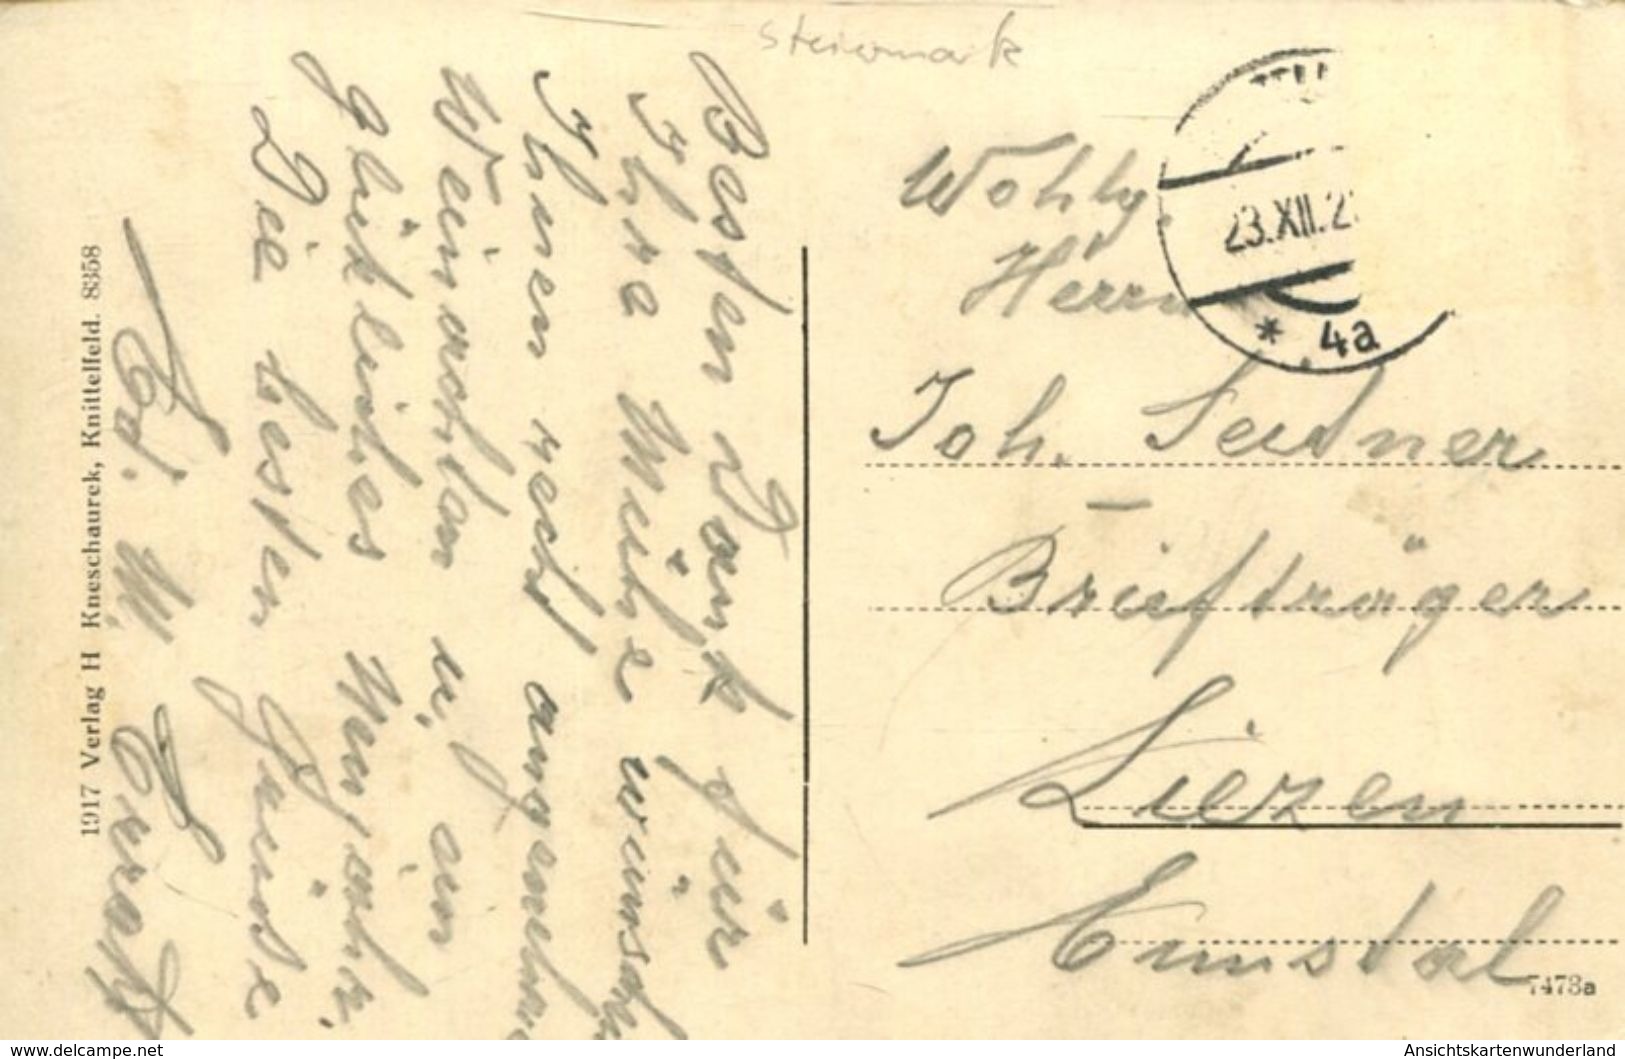 Steiermark
Besten Dank für
Ihre Mühe wünsche
Ihnen recht angenehme
Weinachten u. ein
glükliches Neujahr.
Die besten Grüße
1917 Verlag H Kneschaurek, Knittelfeld. 8358
23.XII.2
* 4a
Wohlg.
Herrn
Joh. Seidner
Briefträger
Liezen
Ennstal
7478a
www.delcampe.net
Ansichtskartenwunderland